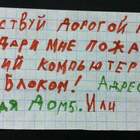 ствуй дорогой
дари мне
ий компьютер
Блоком! Адрес
ая Дом5. Или